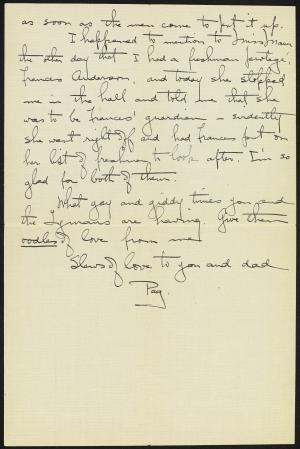 as soon as the men come to put it up.
I happened to mention to Miss
the other day that I had a freshman protege,
Frances Anderson, and today she stopped
me in the hall and told me that she
was to be Frances' guardian – evidently
she went right off and had Frances put on
her list of freshmen to look after. I'm so
glad for both of them.
What gay and giddy times you and
the Lymans are having. Give them
oodles of love from me.
Slews of love to you and dad
Peg.